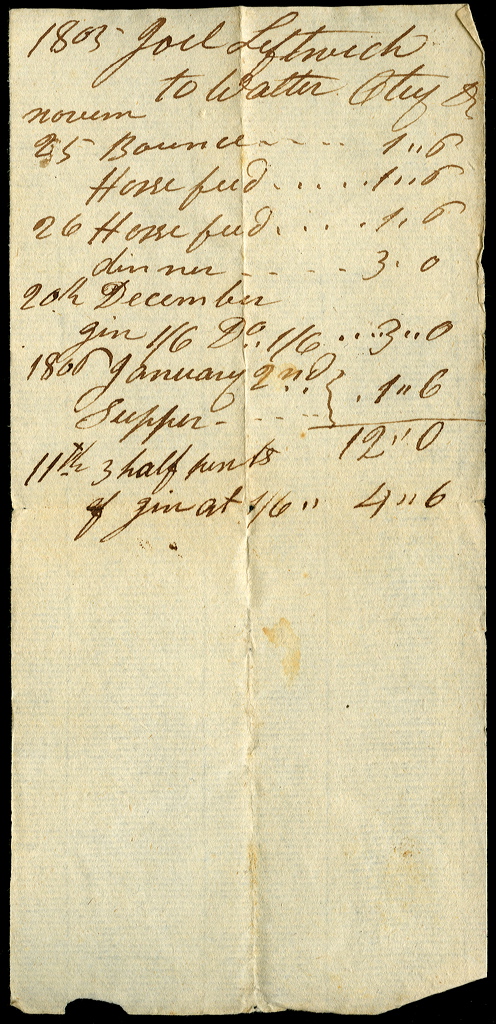 1805 Joel Leftwich
to Walter Otey Dr
novem
25 Bounce ---- 1"6
Horse feed ..... 1"6
26 Horse feed .... 1"6
dinner ---- 3. 0
20th December
gin 1/6 Do. 1/6 .... 3"0
1806 January 2nd
Supper - ---- } . 1"6
12"0
11th 3 half pints
of gin at 1/6" 4"6